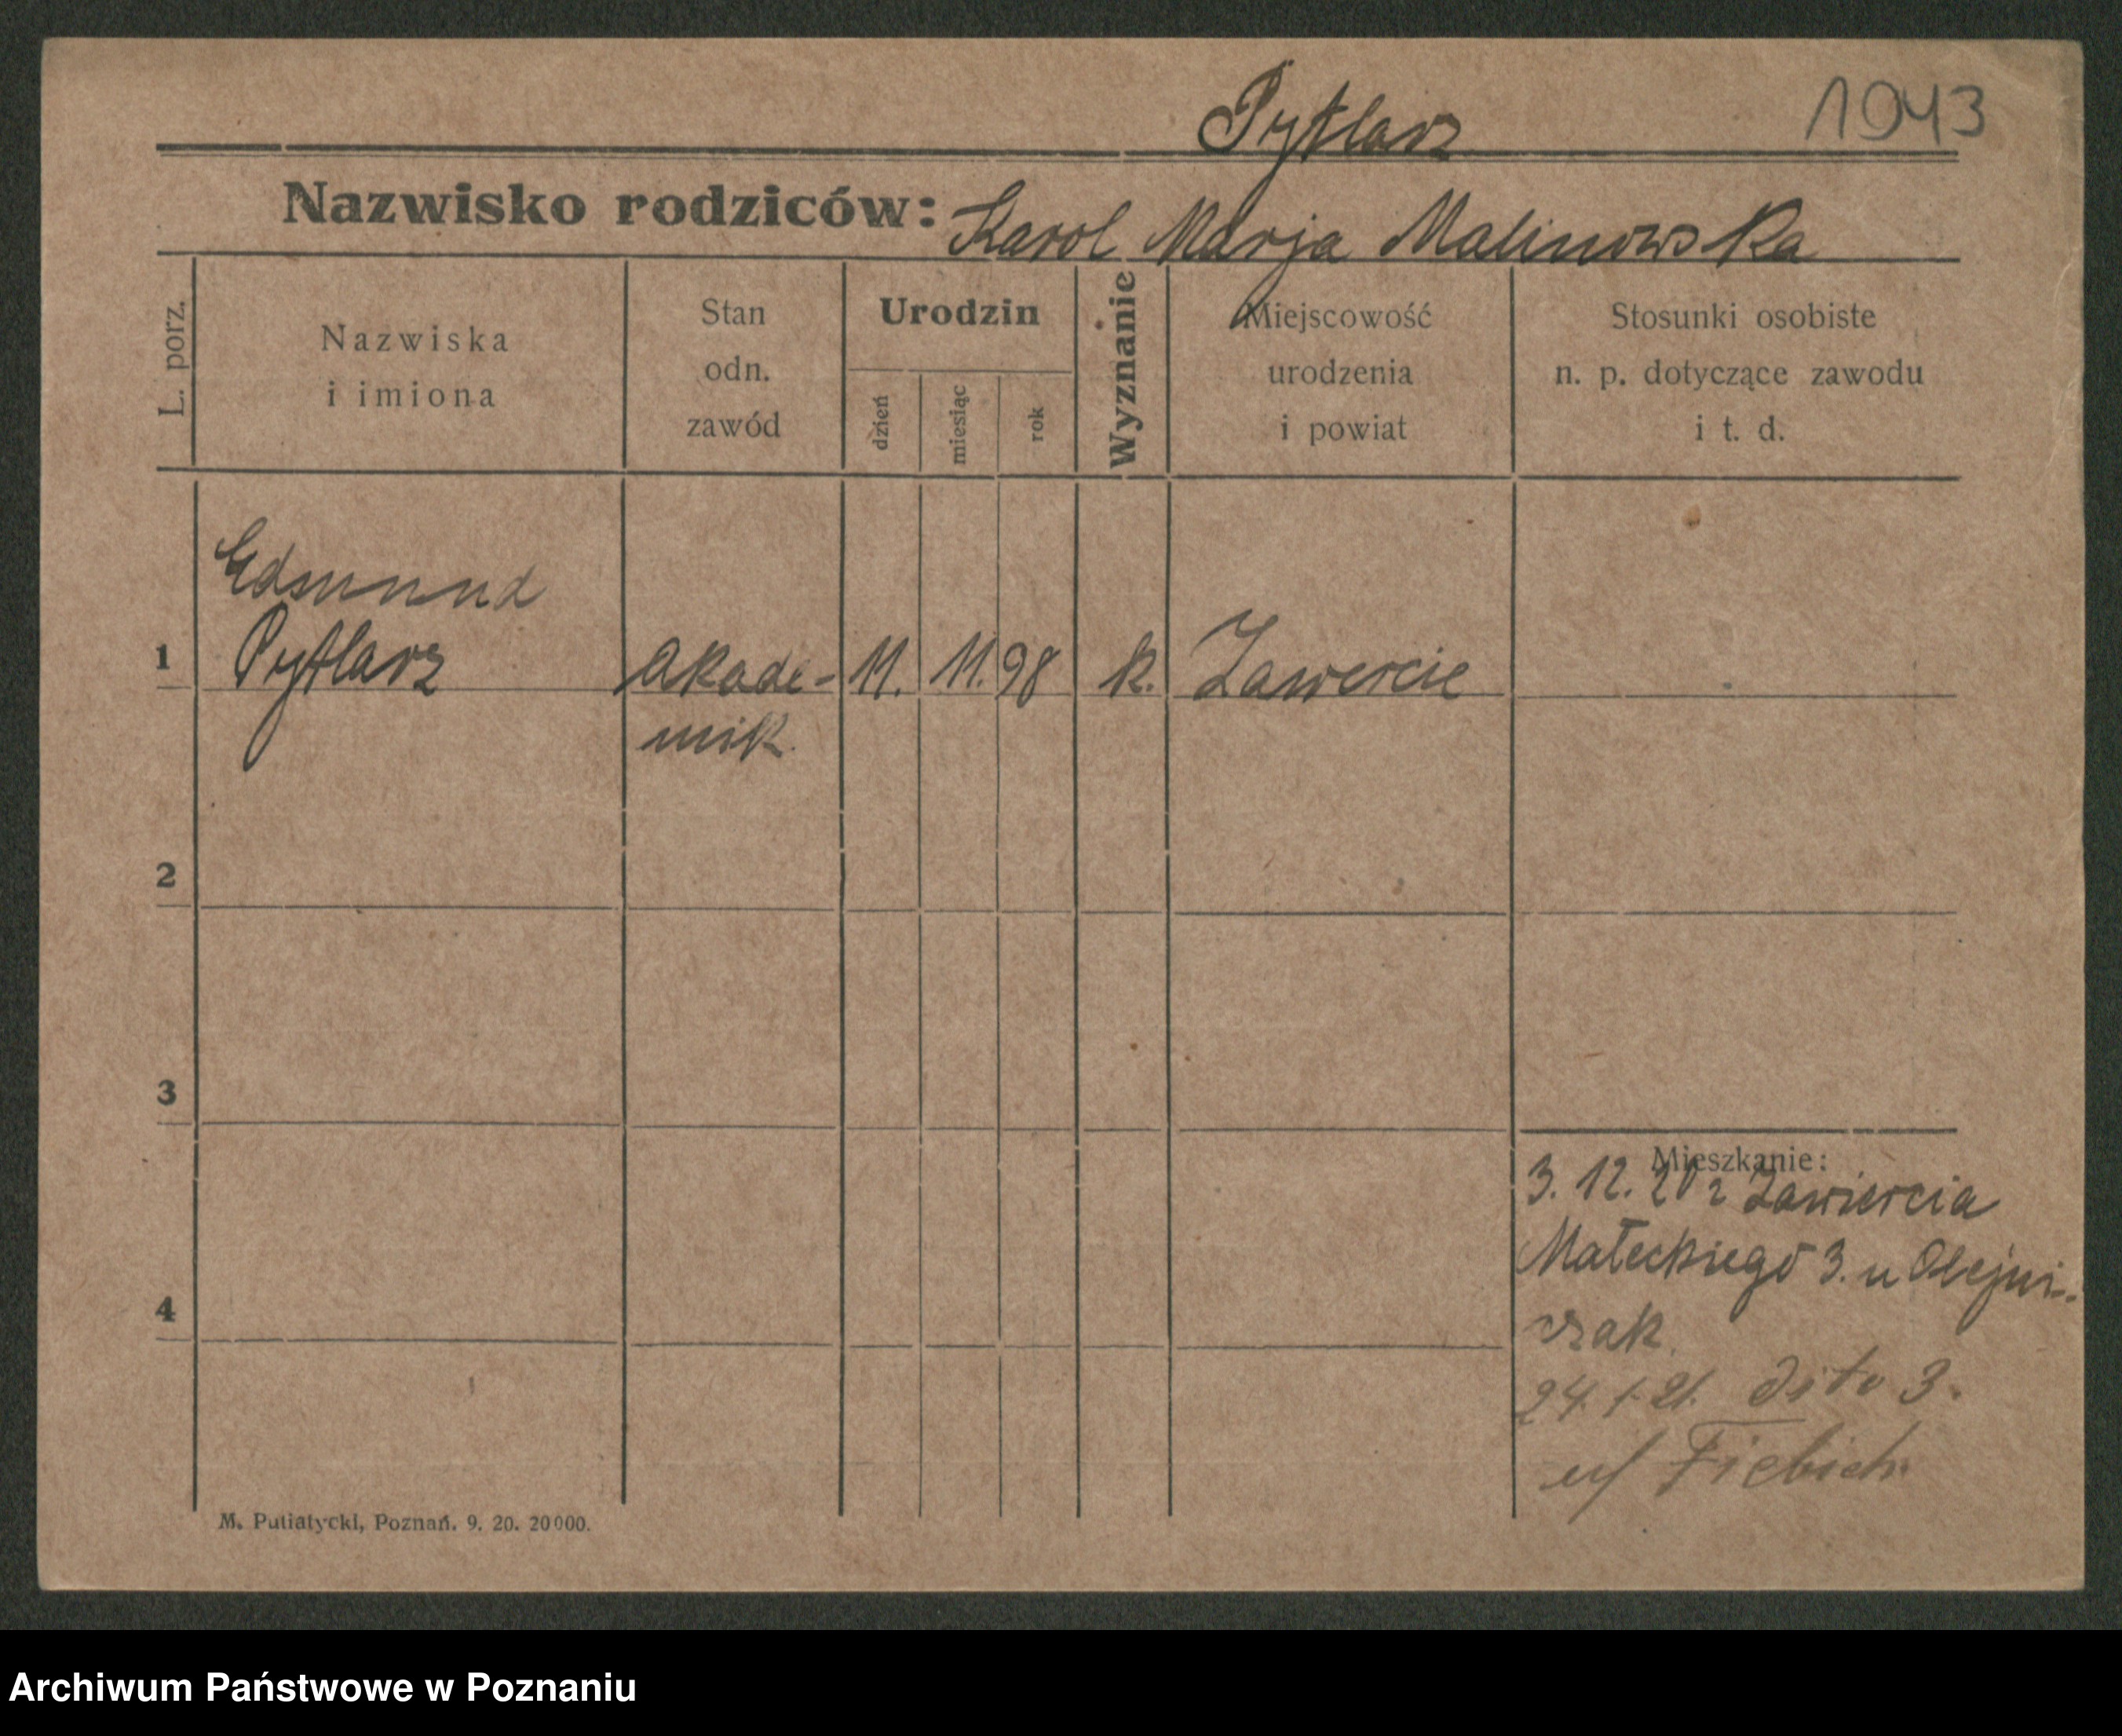 Pytlarz
1943
Nazwisko rodziców: Karol Marja Malinowska
L. porz.
Nazwiska
i imiona
Stan
odn.
zawód
Urodzin
dzień
miesiąc
rok
Wyznanie
Miejscowość
urodzenia
i powiat
Stosunki osobiste
n. p. dotyczące zawodu
i t. d.
Edmund
1 Pytlarz akade- 11. 11. 98 k. Zawercie
mik.
2
3
4
Mieszkanie:
3. 12. 20 z Zawiercia
Małeckiego 3. u Olejni-
czak.
24. 1. 21. dito 3.
u/ Fiebich.
M. Putiatycki, Poznań. 9. 20. 20000.
Archiwum Państwowe w Poznaniu